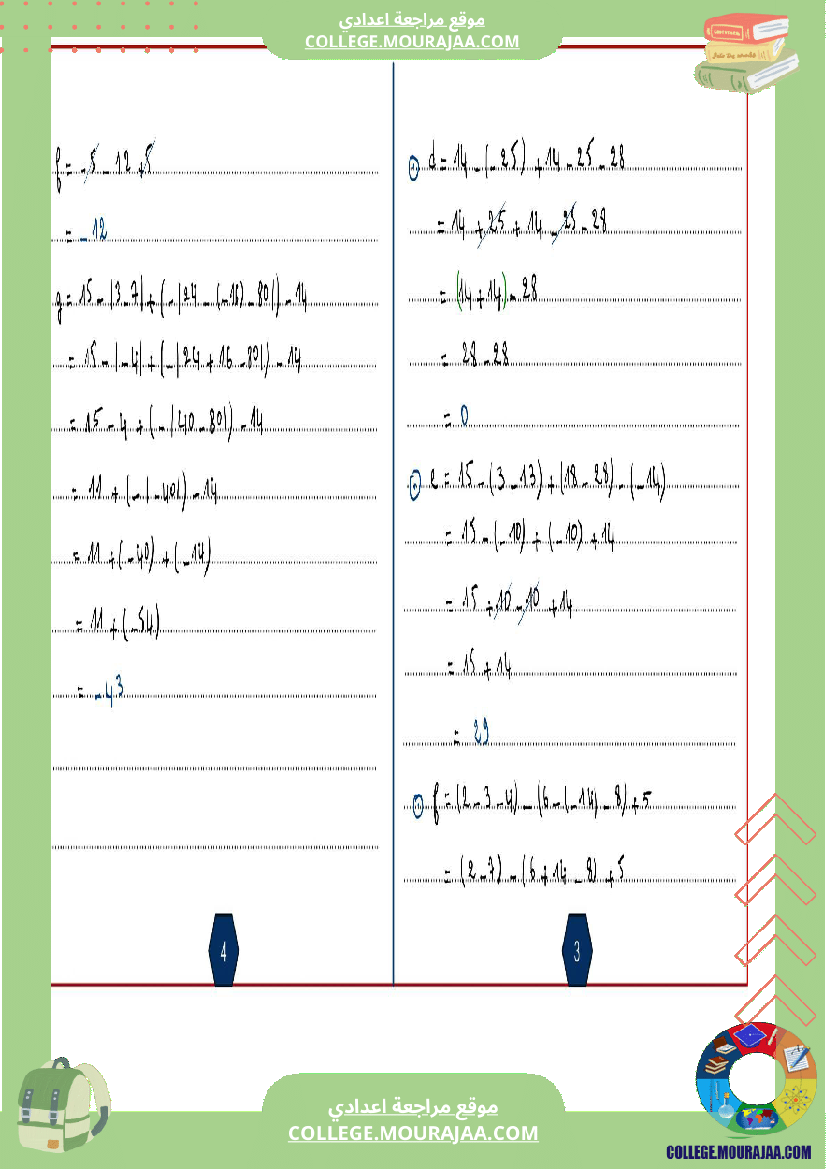 موقع مراجعة اعدادي
COLLEGE.MOURAJAA.COM
d = 14 - (-25) + 14 - 25 - 28
= 14 + 25 + 14 - 25 - 28
= (14 + 14) - 28
= 28 - 28
= 0
e = 15 - (3 - 13) + (18 - 28) - (-14)
= 15 - (-10) + (-10) + 14
= 15 + 10 - 10 + 14
= 15 + 14
= 29
f = (2 - 3 - 4) - (6 - (-14) - 8) + 5
= (2 - 7) - (6 + 14 - 8) + 5
3
f = -5 - 12 + 5
= -12
g = 15 - |3 - 7| + (-|24 - (-16) - 80|) - 14
= 15 - |-4| + (-|24 + 16 - 80|) - 14
= 15 - 4 + (-|40 - 80|) - 14
= 11 + (-|-40|) - 14
= 11 + (-40) + (-14)
= 11 + (-54)
= -43
4
موقع مراجعة اعدادي
COLLEGE.MOURAJAA.COM
COLLEGE.MOURAJAA.COM